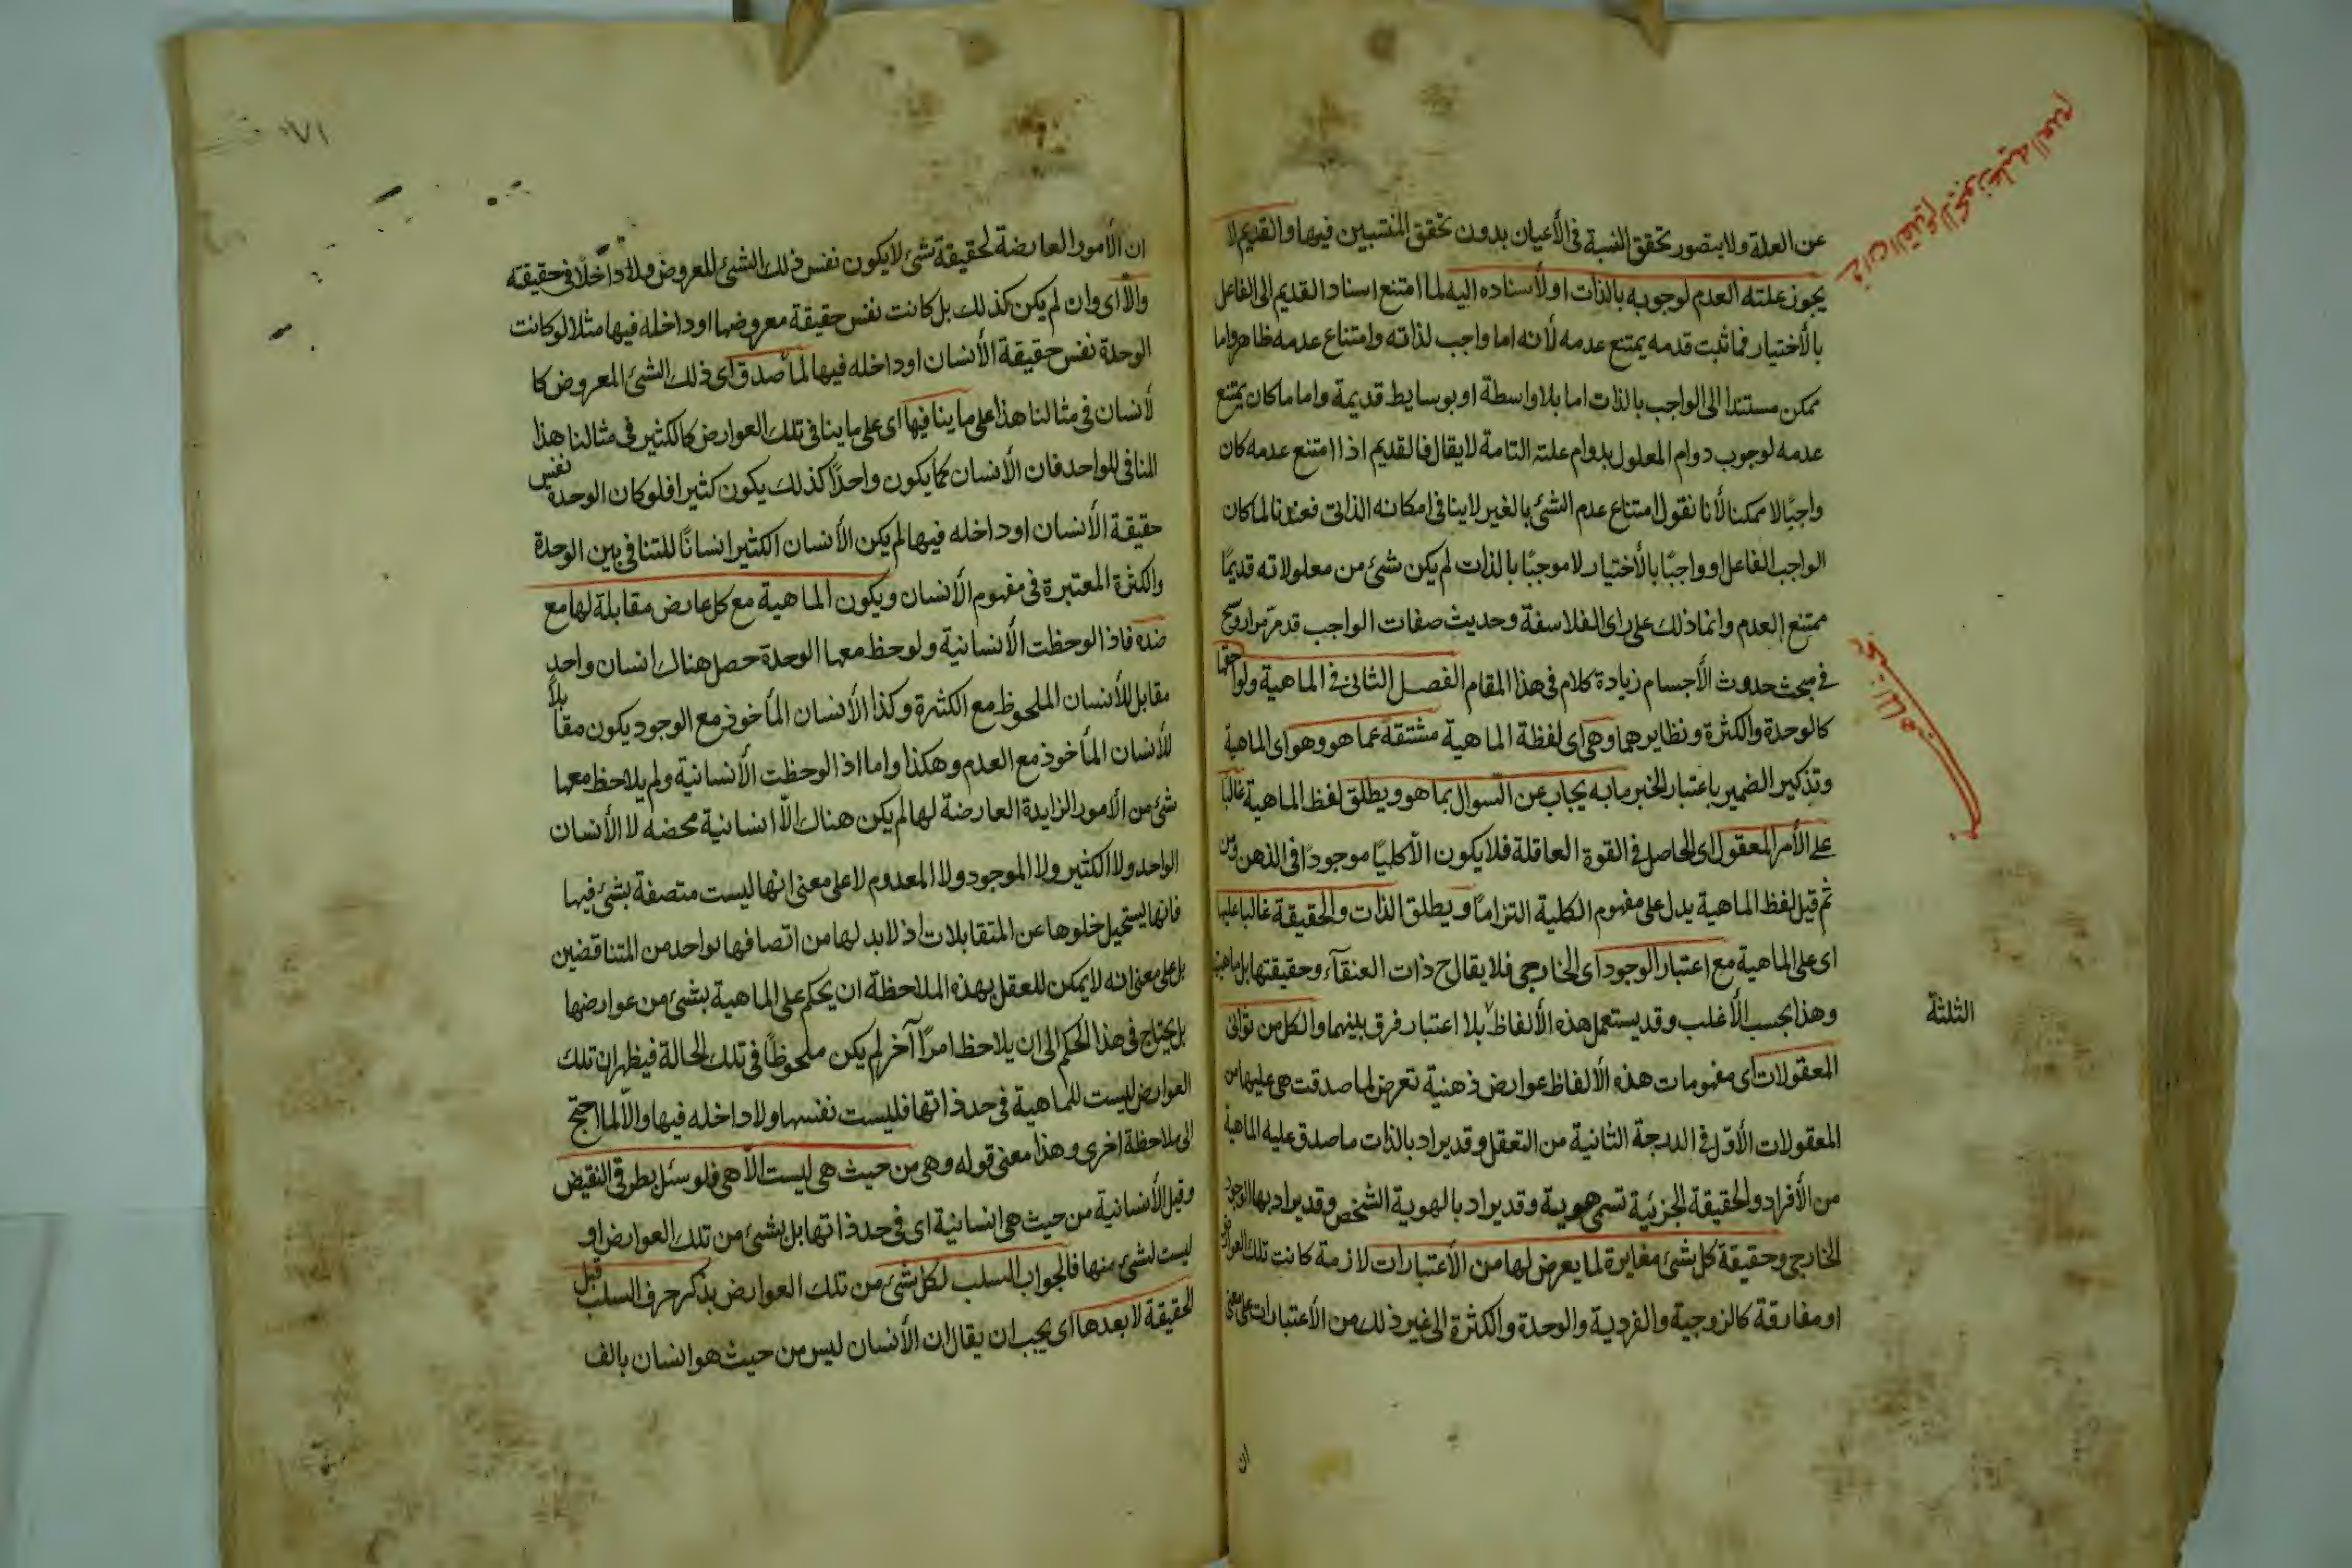 في ان القديم لا يجوز عليه العدم
عن العلة ولا يتصور تحقق النسبة في الأعيان بدون تحقق المنتسبين فيها والقديم لا
يجوز علته العدم لوجوبه بالذات او لأسناده اليه لما امتنع اسناد القديم الى الفاعل
بالأختيار فما ثبت قدمه يمتنع عدمه لأنه اما واجب لذاته وامتناع عدمه ظاهر واما
ممكن مستندا الى الواجب بالذات اما بلا واسطة او بوسايط قديمة واما ما كان يمتنع
عدمه لوجوب دوام المعلول بدوام علته التامة لا يقال فالقديم اذا امتنع عدمه كان
واجبًا لا ممكنا لأنا نقول امتناع عدم الشئ بالغير لا ينافي امكانه الذاتي فعندنا لما كان
الواجب الفاعل او واجبًا بالأختيار لا موجبًا بالذات لم يكن شئ من معلولاته قديمًا
ممتنع العدم وانما ذلك على راى الفلاسفة وحديث صفات الواجب قد مرّ مرارا وسيجئ
في مبحث حدوث الأجسام زيادة كلام في هذا المقام الفصل الثاني في الماهية ولواحقها
كالوحدة والكثرة ونظايرهما وهى اى لفظة الماهية مشتقة عما هو وهو اى الماهية
وتذكير الضمير باعتبار الخبر ما به يجاب عن السوال بما هو ويطلق لفظ الماهية غالبًا
على الأمر المعقول اى الحاصل في القوة العاقلة فلا يكون الا كليًا موجودًا في الذهن ومن
ثم قيل لفظ الماهية يدل على مفهوم الكلية التزامًا ويطلق الذات والحقيقة غالبا عليها
اى على الماهية مع اعتبار الوجود اى الخارجى فلا يقال ح ذات العنقآء وحقيقتها بل ماهيتها
وهذا بحسب الأغلب وقد يستعمل هذه الألفاظ بلا اعتبار فرق بينهما والكل من ثوانى
الثلثة
المعقولات اى مفهومات هذه الألفاظ عوارض ذهنية تعرض لما صدقت هى عليها من
المعقولات الأوَل في الدرجة الثانية من التعقل وقد يراد بالذات ما صدق عليه الماهية
من الأفراد والحقيقة الجزئية تسمى هوية وقد يراد بالهوية الشخص وقد يراد بها الوجود
الخارجى وحقيقة كل شئ مغايرة لما يعرض لها من الأعتبارات لازمة كانت تلك العوارض
او مفارقة كالزوجية والفردية والوحدة والكثرة الى غير ذلك من الأعتبارات على معنى
ان
١٧١
ان الأمور العارضة لحقيقة شئ لا يكون نفس ذلك الشئ المعروض ولا داخلًا في حقيقته
والّا اى وان لم يكن كذلك بل كانت نفس حقيقة معروضها او داخله فيها مثلا لو كانت
الوحدة نفس حقيقة الأنسان او داخله فيها لما صدق اى ذلك الشئ المعروض كا
لأنسان في مثالنا هذا على ما ينافيها اى على ما ينافى تلك العوارض كالكثير في مثالنا هذا
المنافى للواحد فان الأنسان كما يكون واحدًا كذلك يكون كثيرا فلو كان الوحدة نفس
حقيقة الأنسان او داخله فيها لم يكن الأنسان الكثير انسانًا للتنافى بين الوحدة
والكثرة المعتبرة في مفهوم الأنسان ويكون الماهية مع كل عارض مقابلة لها مع
ضده فاذا لوحظت الأنسانية ولوحظ معها الوحدة حصل هناك انسان واحد
مقابل للأنسان الملحوظ مع الكثرة وكذا الأنسان المأخوذ مع الوجود يكون مقابلًا
للأنسان المأخوذ مع العدم وهكذا واما اذا لوحظت الأنسانية ولم يلاحظ معها
شئ من الأمور الزايدة العارضة لها لم يكن هناك الّا انسانية محضه لا الأنسان
الواحد ولا الكثير ولا الموجود ولا المعدوم لا على معنى انها ليست متصفة بشئ فيها
فانها يستحيل خلوها عن المتقابلات اذ لا بد لها من اتصافها بواحد من المتناقضين
بل على معنى انه لا يمكن للعقل بهذه الملاحظة ان يحكم على الماهية بشئ من عوارضها
بل يحتاج في هذا الحكم الى ان يلاحظ امرًا آخر لم يكن ملحوظًا في تلك الحالة فيظهر ان تلك
العوارض ليست للماهية في حد ذاتها فليست نفسها ولا داخله فيها والّا لما احتج
الى ملاحظة اخرى وهذا معنى قوله وهى من حيث هى ليست الّا هى فلو سئل بطرفى النقيض
وقيل الأنسانية من حيث هى انسانية اى في حد ذاتها بل بشئ من تلك العوارض او
ليست لشئ منها فالجواب السلب لكل شئ من تلك العوارض بذكر حرف السلب قبل
الحقيقة لا بعدها اى يجب ان يقال ان الأنسان ليس من حيث هو انسان بالف